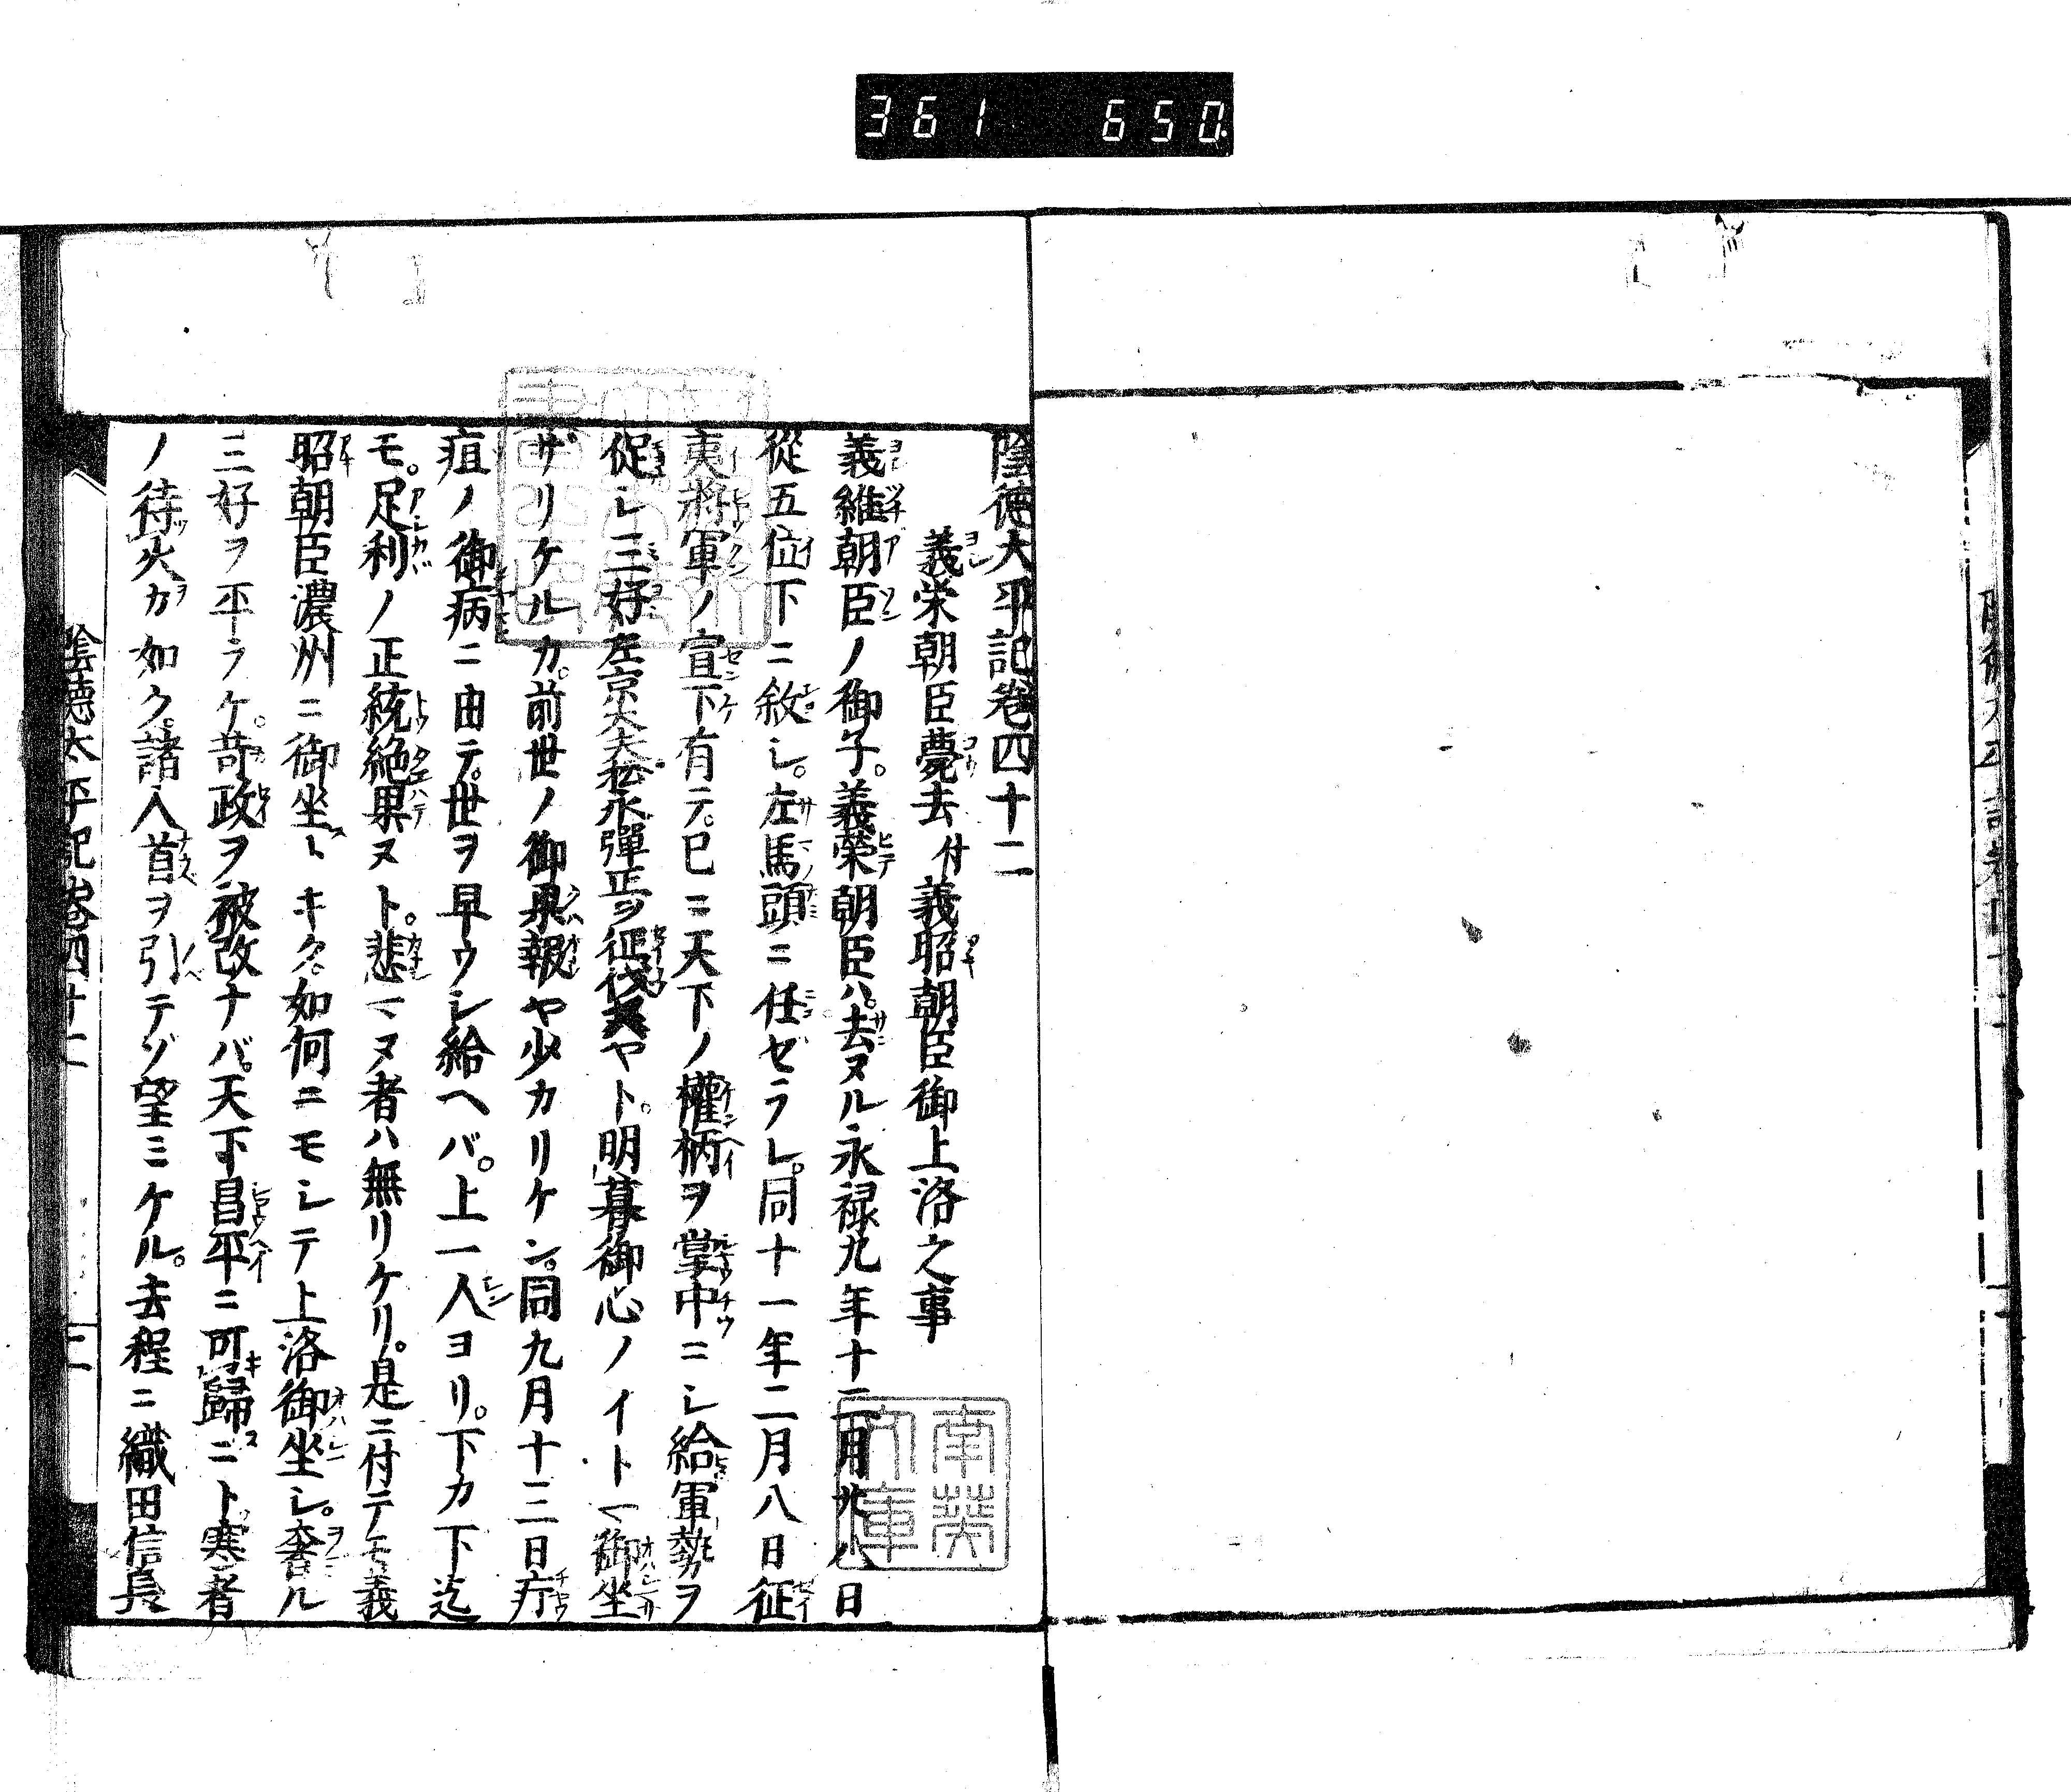 361 650
陰徳太平記巻四十二
義栄朝臣薨去付義昭朝臣御上洛之事
義維朝臣ノ御子。義榮朝臣ハ。去ヌル永禄九年十二月廿八日
從五位下ニ敘シ。左馬頭ニ任ゼラレ。同十一年二月八日征
夷將軍ノ宣下有テ。巳ニ天下ノ權柄ヲ掌中ニシ給軍勢ヲ
促シ三好左京大夫松永彈正ヲ征伐セハヤト。明暮御心ノイトマ御坐
ザリケルカ。前世ノ御果報ヤ少カリケン。同九月十三日疔
疽ノ御病ニ由テ。世ヲ早ウシ給ヘバ。上一人ヨリ。下カ下迄
モ。足利ノ正統絶果ヌト。悲マヌ者ハ無リケリ。是ニ付テモ義
昭朝臣濃州ニ御坐トキク。如何ニモシテ上洛御坐シ。奢ル
三好ヲ平ラケ。苛政ヲ被改ナバ。天下昌平ニ可歸ニト。寒者
ノ待火カ如ク。諸人首ヲ引テゾ望ミケル。去程ニ織田信長
陰徳太平記巻四十二
一
南葵
文庫